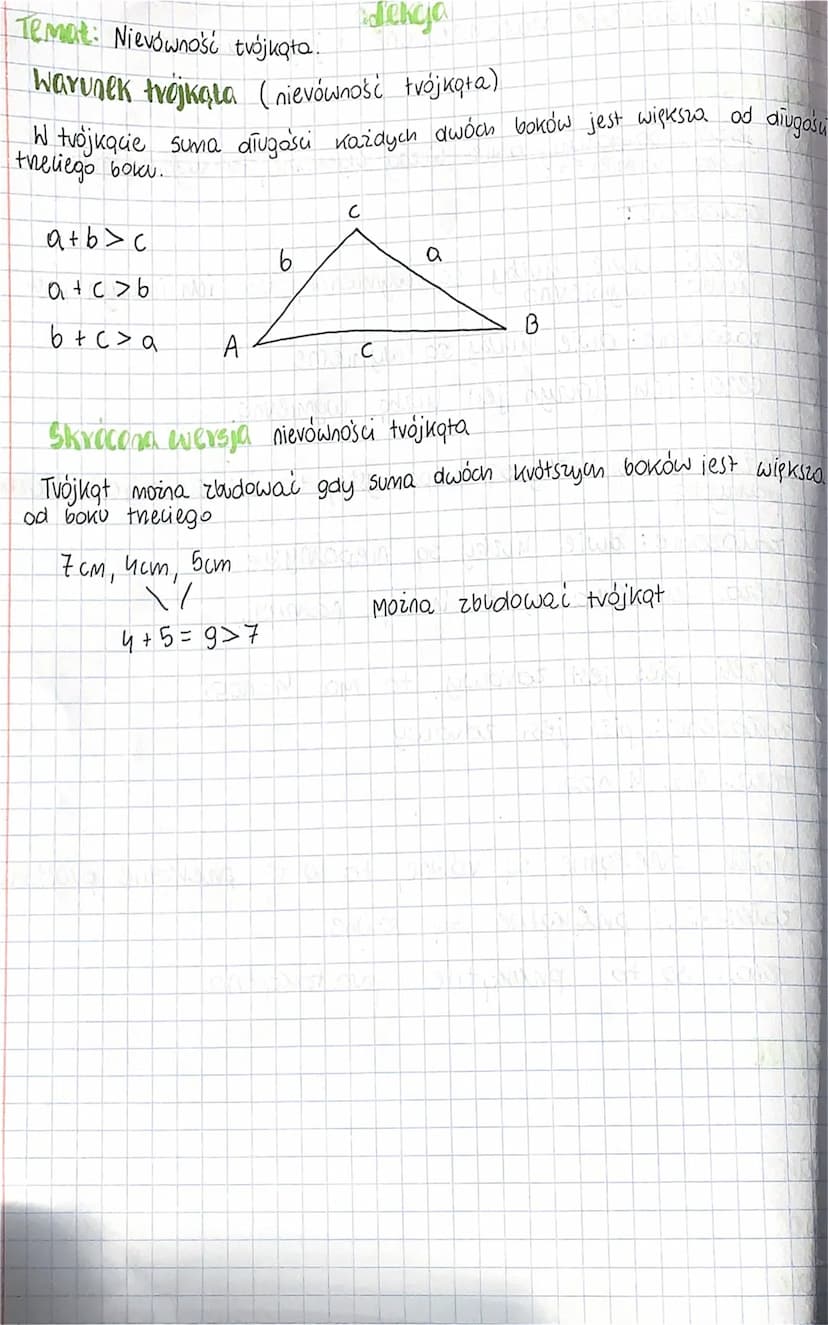 Lekcja
Temat: Nierówność trójkąta.
Warunek trójkąta (nierówność trójkąta)
W trójkącie suma długości każdych dwóch boków jest większa od długości
trzeciego boku.
C
a + b > c
b
a
a + c > b
b + c > a
A
B
c
Skrócona wersja nierówności trójkąta
Trójkąt można zbudować gdy suma dwóch krótszych boków jest większa
od boku trzeciego
7 cm, 4cm, 5cm
Można zbudować trójkąt
4 + 5 = 9 > 7